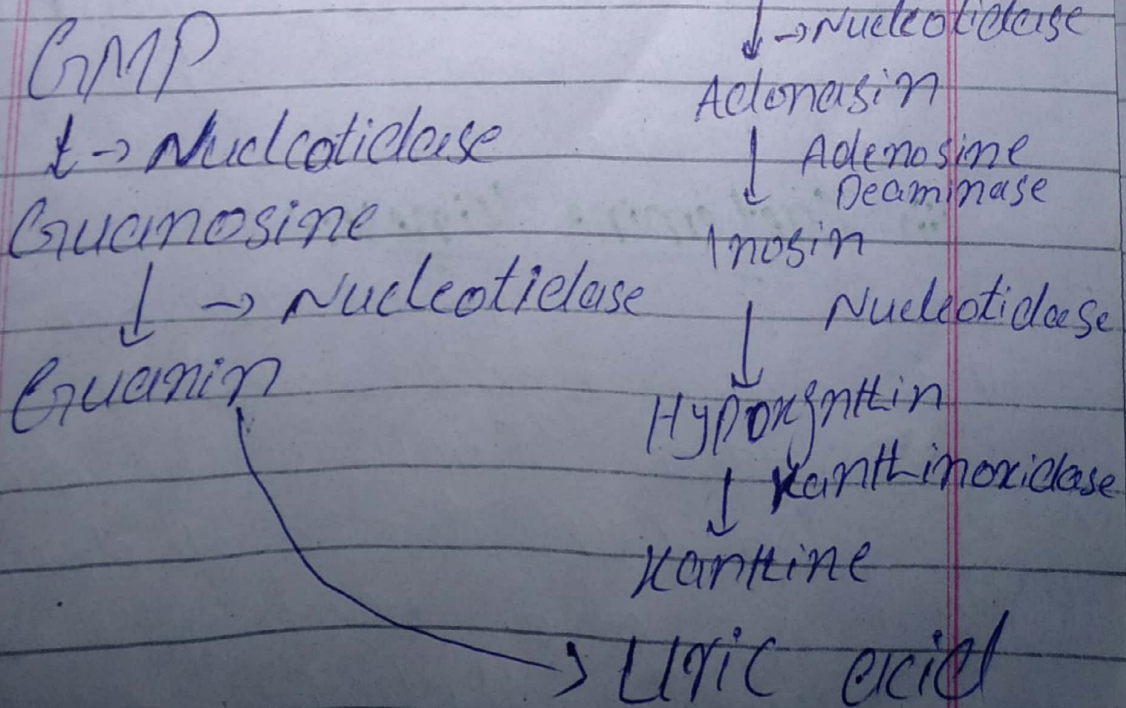 GMP
→ Nucleotidase
Guanosine
→ Nucleotidase
Guanin
→ Nucleotidase
Adonasin
Adenosine
Deaminase
Inosin
Nucleotidase
Hypoxanthin
Xanthinoxidase
Xanthine
Uric acid